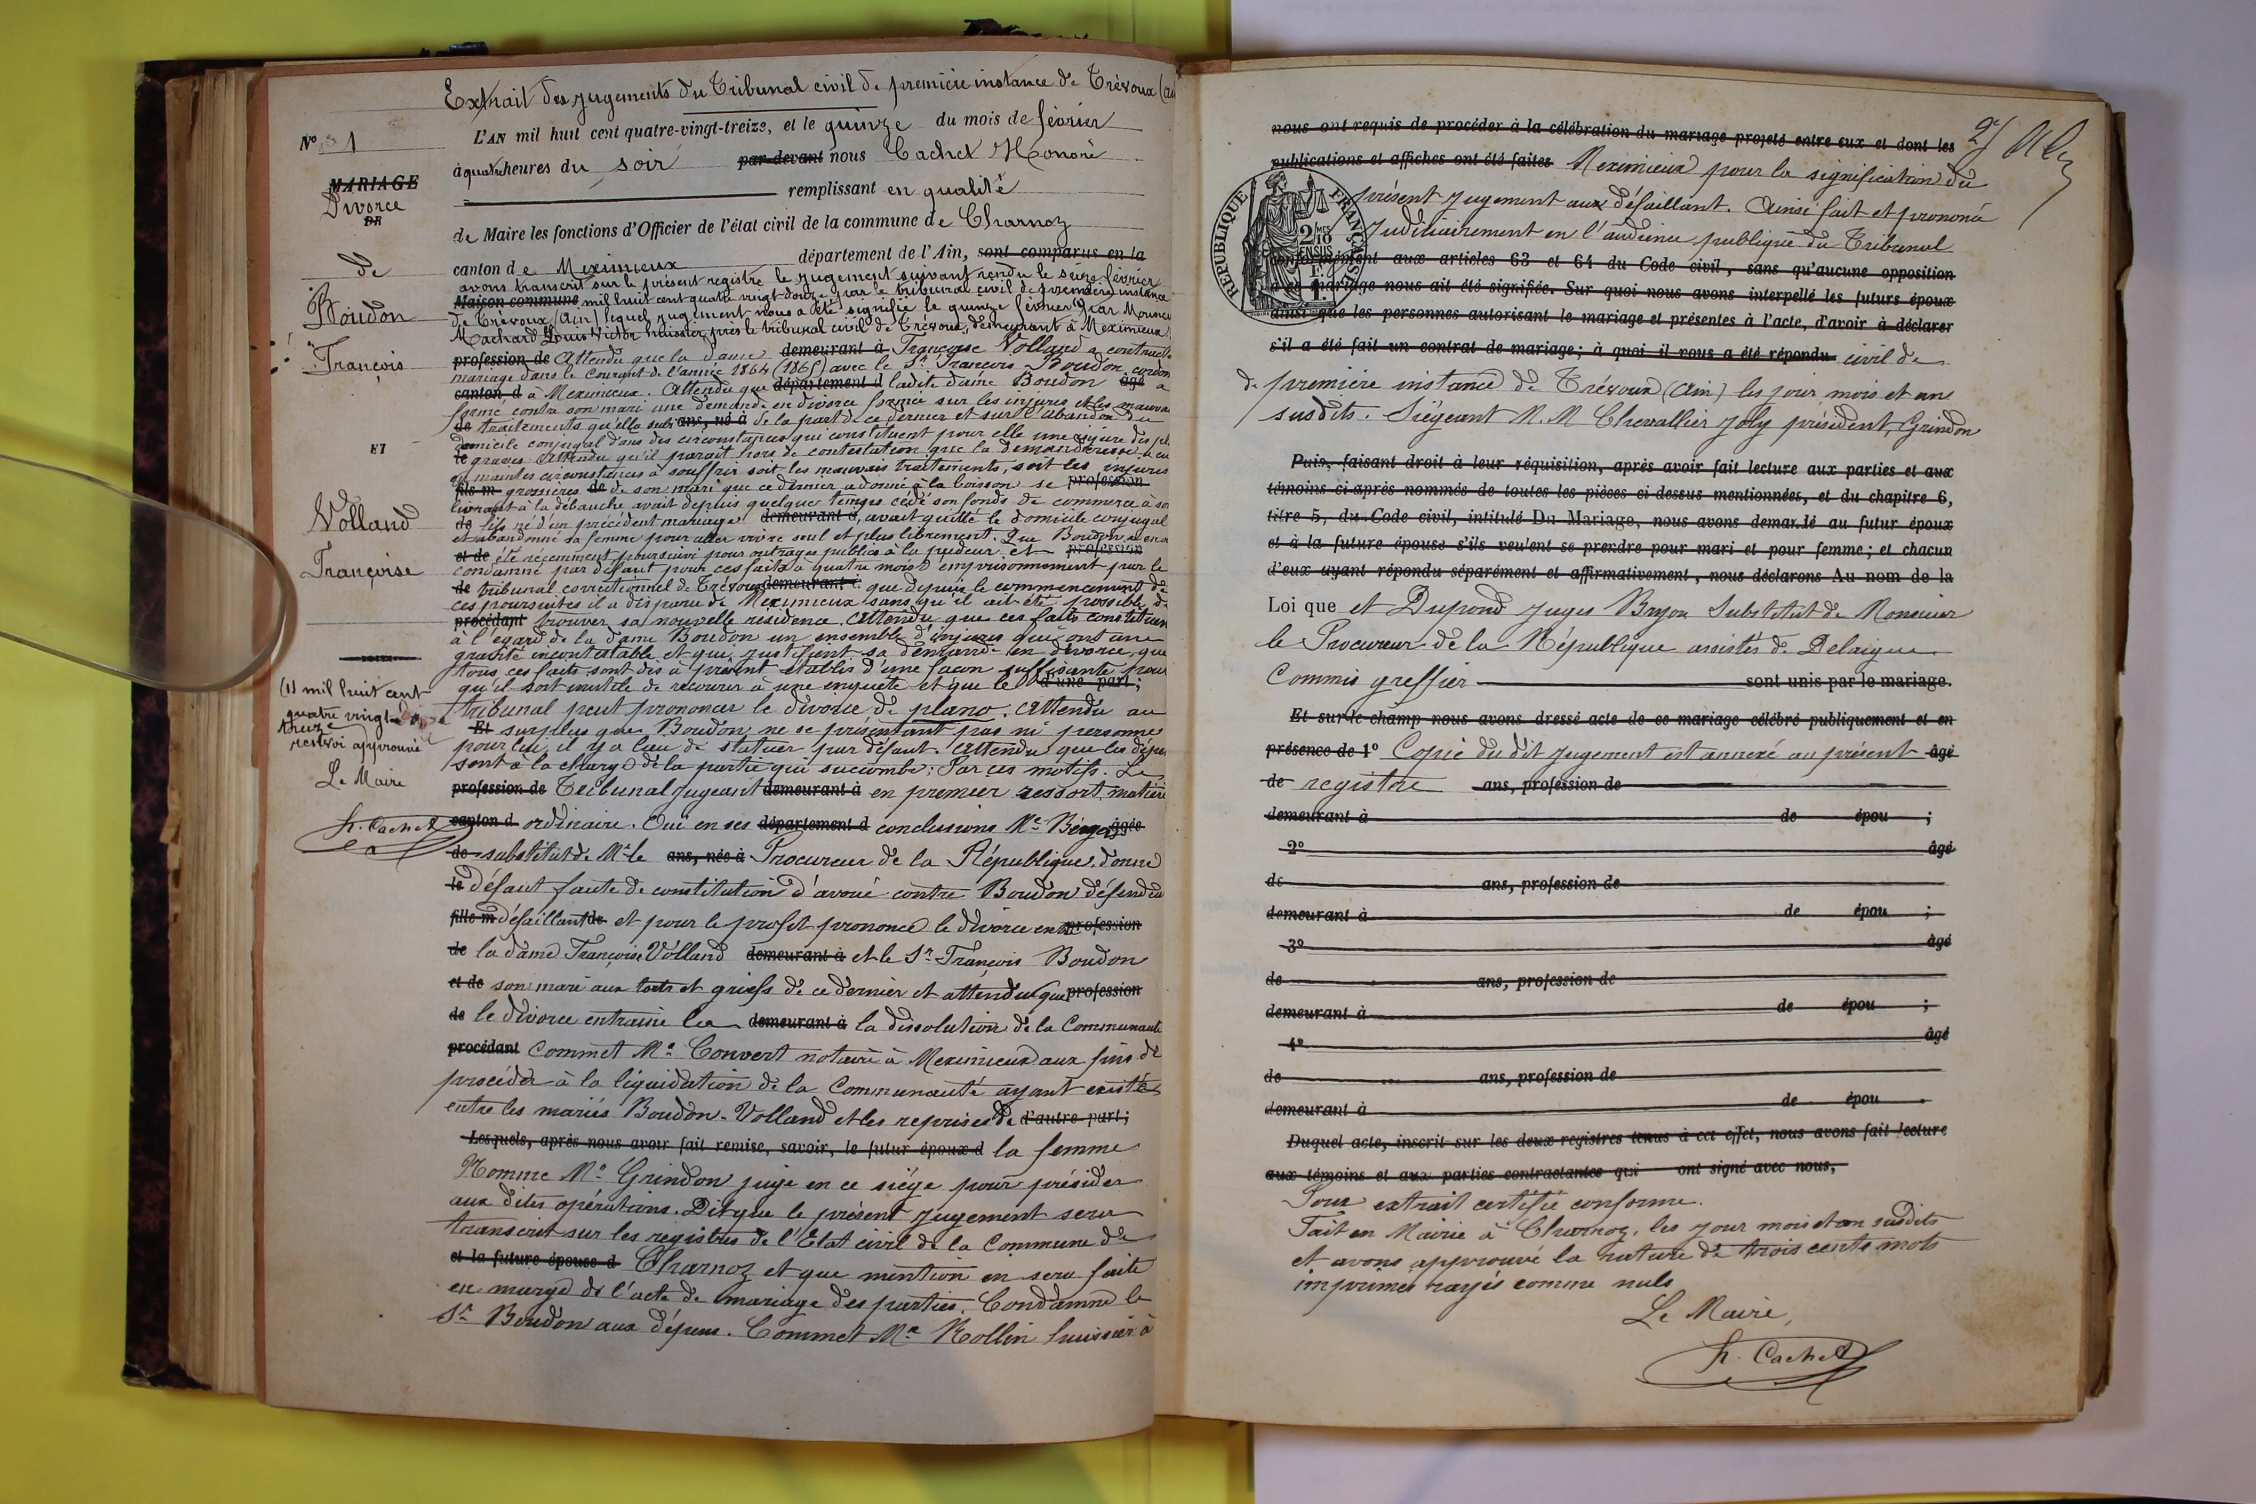 Extrait des jugements du Tribunal civil de première instance de Trévoux (Ain
N° 1
L'AN mil huit cent quatre-vingt-treize, et le quinze du mois de février
à quatre heures du soir par-devant nous Cachet Honoré
MARIAGE
Divorce
DE
remplissant en qualité
de Maire les fonctions d'Officier de l'état civil de la commune de Charnoz
de
canton de Meximieux département de l'Ain, sont comparus en la
avons transcrit sur le présent registre le jugement suivant rendu le seize février
Boudon
Maison commune mil huit cent quatre vingt douze par le tribunal civil de première instance
de Trévoux (Ain) lequel jugement nous a été signifié le quinze février (1) par Monsieur
Machard Louis Victor huissier près le tribunal civil de Trévoux, demeurant à Meximieux
François
profession de Attendu que la dame demeurant à Françoise Volland a contracté
mariage dans le courant de l'année 1864 (1865) avec le Sr François Boudon, cordon
canton d à Meximieux. Attendu que département d ladite dame Boudon âgé a
formé contre son mari une demande en divorce formée sur les injures et les mauvais
de traitements qu'elle subi ans, né à de la part de ce dernier et sur l'abandon du
domicile conjugal dans des circonstances qui constituent pour elle une injure des pl
ET
le graves Attendu qu'il parait hors de contestation que la demanderesse a eu
en maintes circonstances à souffrir soit les mauvais traitements, soit les injures
fils m grossières de de son mari que ce dernier adonné à la boisson se profession
livrant à la débauche avait depuis quelque temps cédé son fonds de commerce à so
Volland
de fils né d'un précédent mariage demeurant à, avait quitté le domicile conjugal
et abandonné sa femme pour aller vivre seul et plus librement. Que Boudon a en
et de été récemment poursuivi pour outrages publics à la pudeur et profession
Françoise
condamné par défaut pour ces faits à quatre mois d'emprisonnement par le
de tribunal correctionnel de Trévoux demeurant à que depuis le commencement de
ces poursuites il a disparu de Meximieux sans qu'il ait été possible de
procédant trouver sa nouvelle résidence. Attendu que ces faits constituen
à l'égard de la dame Boudon un ensemble d'injures qui ont une
gravité incontestable et qui justifient sa demande en divorce, que
tous ces faits sont dès à présent établis d'une façon suffisante pour
qu'il soit inutile de recourir à une enquête et que le d'une part;
(1) mil huit cent
quatre vingt
treize
renvoi approuvé
Le Maire
H. Cachet
tribunal peut prononcer le divorce de plano. Attendu au
Et surplus que Boudon ne se présentant pas ni personne
pour lui, il y a lieu de statuer par défaut. Attendu que les dépens
sont à la charge de la partie qui succombe; Par ces motifs. Le
profession de Tribunal jugeant demeurant à en premier ressort, matière
canton d ordinaire. Oui en ses département d conclusions Me Berger âgée
de substitut de Mr le ans, née à Procureur de la République, donne
le défaut faute de constitution d'avoué contre Boudon défendeu
fille m défaillant de et pour le profit prononce le divorce entre profession
de la dame Françoise Volland demeurant à et le Sr François Boudon
et de son mari aux torts et griefs de ce dernier et attendu que profession
de le divorce entraine la demeurant à la dissolution de la Communauté
procédant Commet Me Convert notaire à Meximieux aux fins de
procéder à la liquidation de la Communauté ayant existée
entre les mariés Boudon-Volland et les reprises de d'autre part;
Lesquels, après nous avoir fait remise, savoir, le futur époux d la femme
Nomme Mr Grindon juge en ce siège pour présider
aux dites opérations. Dit que le présent jugement sera
transcrit sur les registres de l'Etat civil de la Commune de
et la future épouse d Charnoz et que mention en sera faite
en marge de l'acte de mariage des parties. Condamne le
Sr Boudon aux dépens. Commet Me Rollin huissier à
2e
nous ont requis de procéder à la célébration du mariage projeté entre eux et dont les
publications et affiches ont été faites Meximieux pour la signification du
présent jugement aux défaillant. Ainsi fait et prononcé
RÉPUBLIQUE FRANÇAISE
2 MES 10 EN SUS 1 F.
Judiciairement en l'audience publique du Tribunal
conformément aux articles 63 et 64 du Code civil, sans qu'aucune opposition
à ce mariage nous ait été signifiée. Sur quoi nous avons interpellé les futurs époux
ainsi que les personnes autorisant le mariage et présentes à l'acte, d'avoir à déclarer
s'il a été fait un contrat de mariage; à quoi il nous a été répondu civil de
de première instance de Trévoux (Ain) les jour, mois et an
susdits. Siégeant M.M Chevallier Joly président, Grindon
Puis, faisant droit à leur réquisition, après avoir fait lecture aux parties et aux
témoins ci-après nommés de toutes les pièces ci-dessus mentionnées, et du chapitre 6,
titre 5, du Code civil, intitulé Du Mariage, nous avons demandé au futur époux
et à la future épouse s'ils veulent se prendre pour mari et pour femme; et chacun
d'eux ayant répondu séparément et affirmativement, nous déclarons Au nom de la
Loi que et Dupond juges Bryon Substitut de Monsieur
le Procureur de la République assistés de Delaigue
Commis greffier sont unis par le mariage.
Et sur-le-champ nous avons dressé acte de ce mariage célébré publiquement et en
présence de 1° Copie du dit jugement est annexé au présent âgé
de registre ans, profession de
demeurant à de épou ;
2° âgé
de ans, profession de
demeurant à de épou ;
3° âgé
de ans, profession de
demeurant à de épou ;
4° âgé
de ans, profession de
demeurant à de épou .
Duquel acte, inscrit sur les deux registres tenus à cet effet, nous avons fait lecture
aux témoins et aux parties contractantes qui ont signé avec nous,
Pour extrait certifié conforme.
Fait en Mairie à Charnoz, les jour mois et an susdits
et avons approuvé la rature de trois cents mots
imprimés rayés comme nuls
Le Maire,
H. Cachet